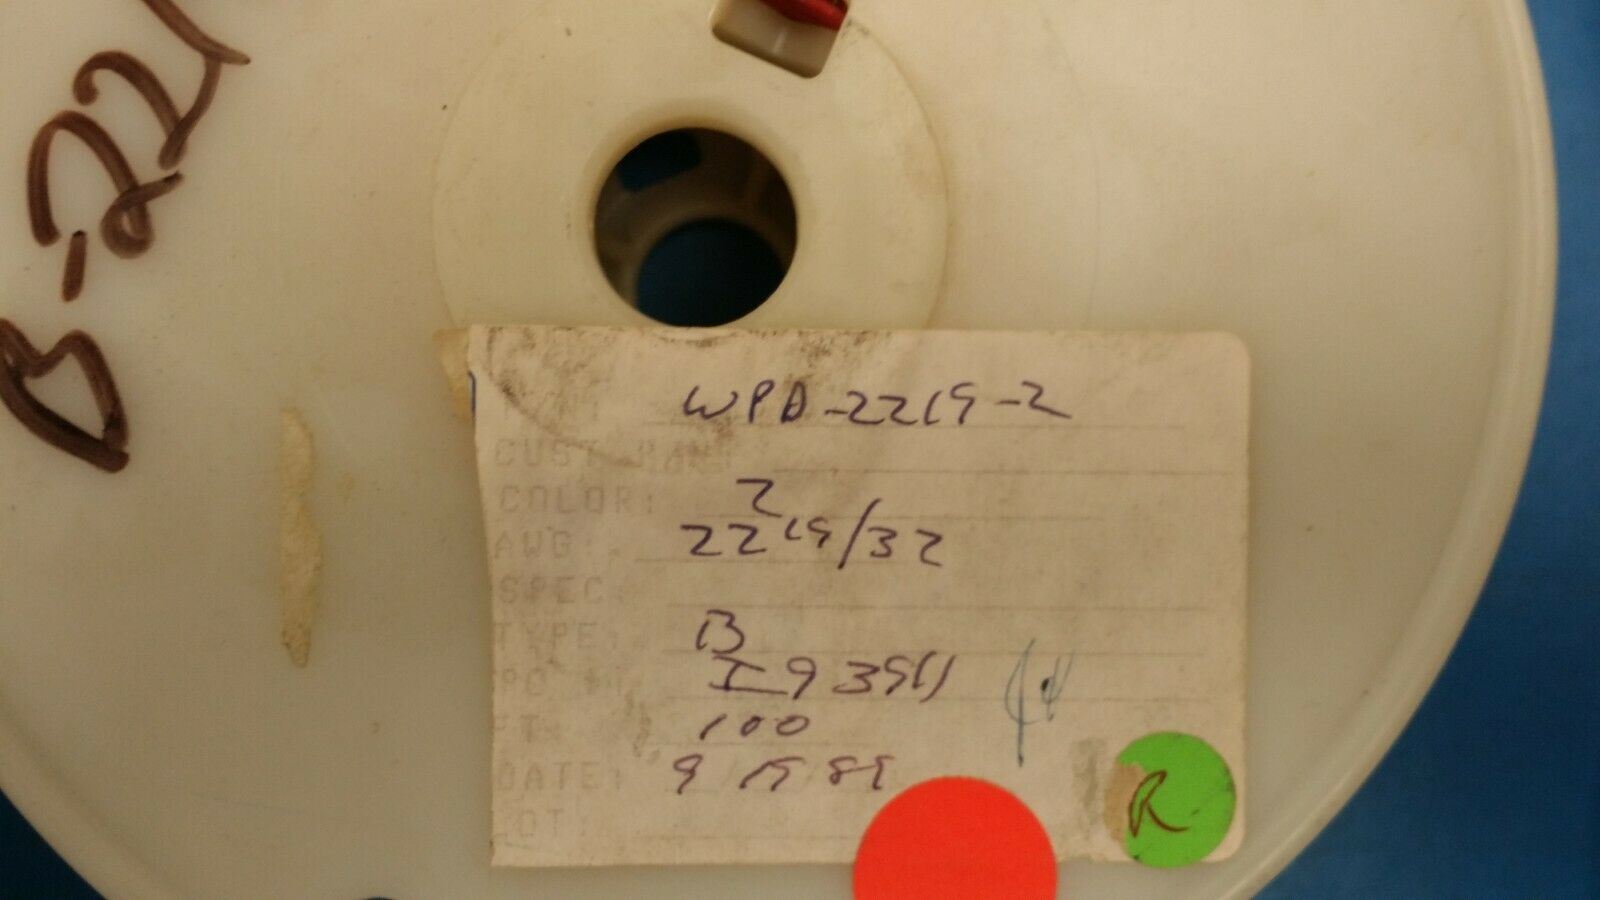 B-221
WPD-2219-2
CUST
COLOR: 2
AWG: 22 19/32
SPEC:
TYPE: B
PO #: I93911
FT: 100
DATE: 9 19 89
LOT:
R